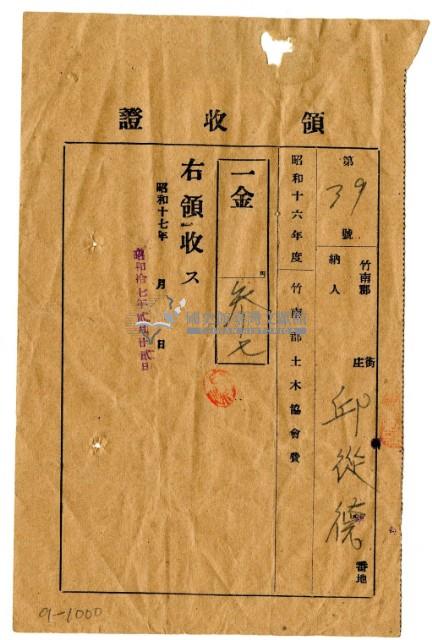 領收證
第39號
竹南郡 街庄 番地
納人 邱從德
昭和十六年度竹南郡土木協會費
一金 円
右領收ス
昭和十七年 月 日
昭和拾七年貳月廿貳日
9-1000